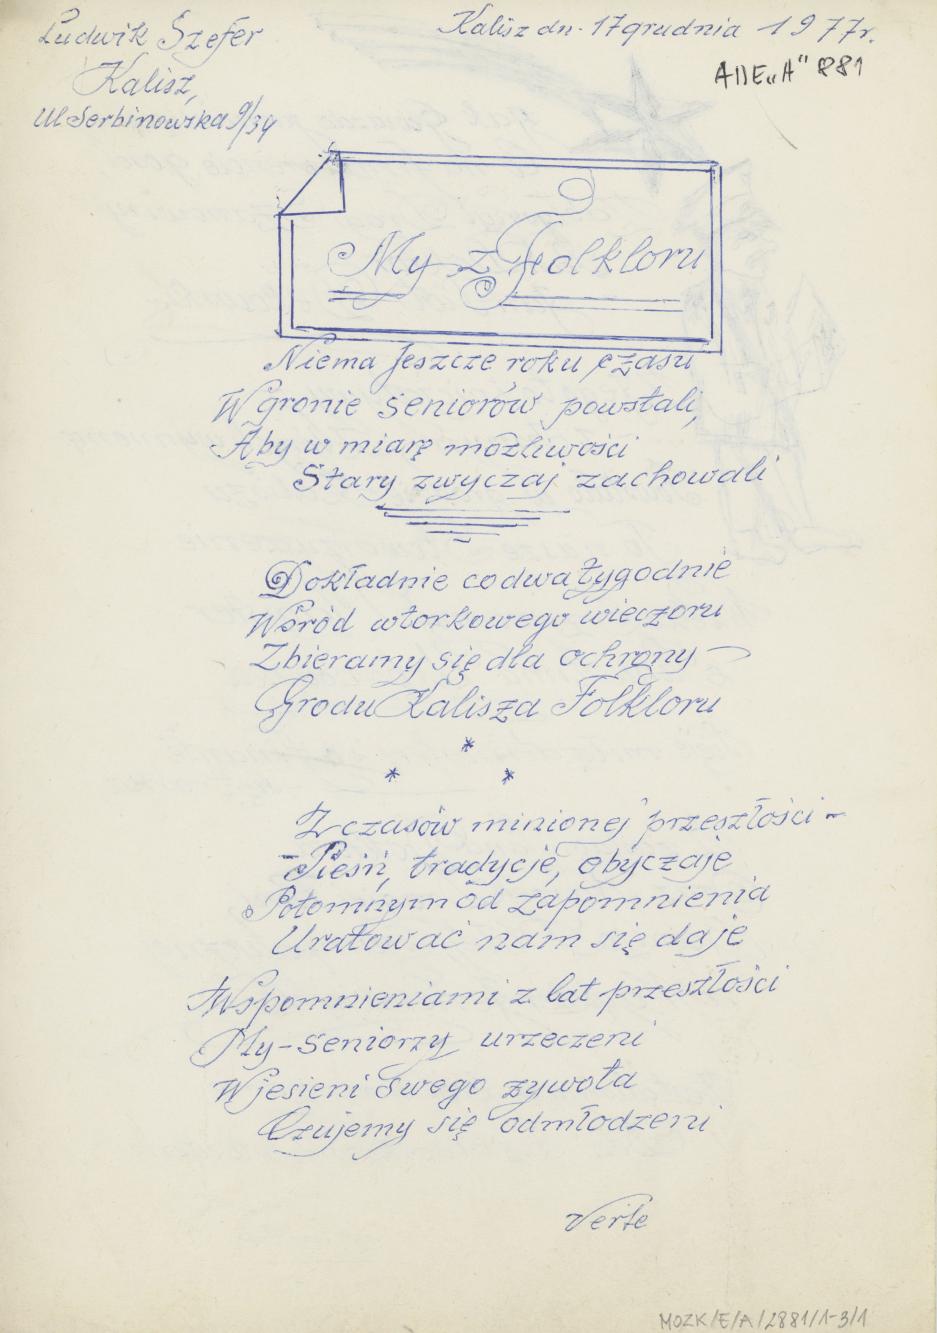 Ludwik Szefer
Kalisz,
Ul Serbinowska 9/34
Kalisz dn. 17 grudnia 1977r.
ADE „A" 881
My z Folkloru
Niema jeszcze roku czasu
W gronie seniorów powstali,
Aby w miarę możliwości
Stary zwyczaj zachowali
Dokładnie co dwa tygodnie
Wśród wtorkowego wieczoru
Zbieramy się dla ochrony –
Grodu Kalisza Folkloru
*
* *
Z czasów minionej przeszłości –
– Pieśń, tradycje, obyczaje
Potomnym od zapomnienia
Uratować nam się daje
Wspomnieniami z lat przeszłości
My – seniorzy urzeczeni
W jesieni swego żywota
Czujemy się odmłodzeni
Verte
MOZK/E/A/2881/1-3/1